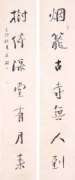 煙籠古寺無人到
樹倚深堂有月來